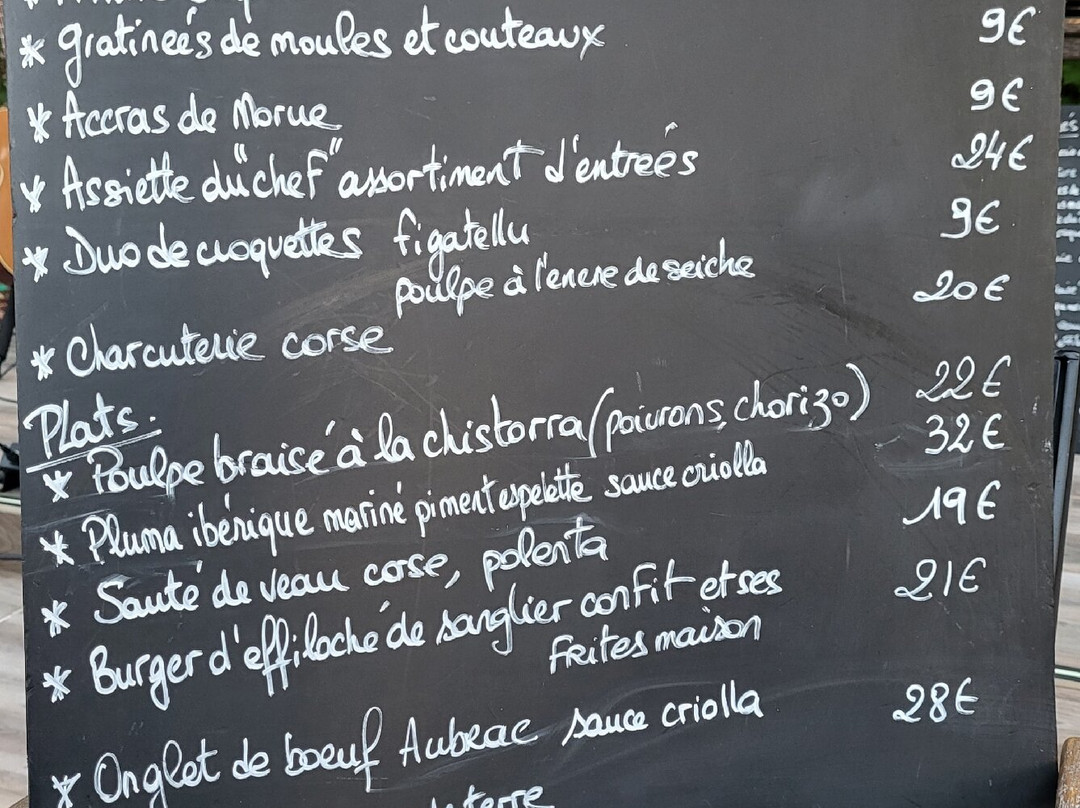 * gratineés de moules et couteaux 9€
* Accras de Morue 9€
* Assiette du "chef" assortiment d'entreés 24€
* Duo de croquettes figatellu 9€
poulpe à l'encre de seiche
* Charcuterie corse 20€
Plats:
* Poulpe braisé à la chistorra (poivrons, chorizo) 22€
* Pluma ibérique mariné piment espelette sauce criolla 32€
* Sauté de veau corse, polenta 19€
* Burger d'effiloché de sanglier confit et ses 21€
Frites maison
* Onglet de boeuf Aubrac sauce criolla 28€
de terre